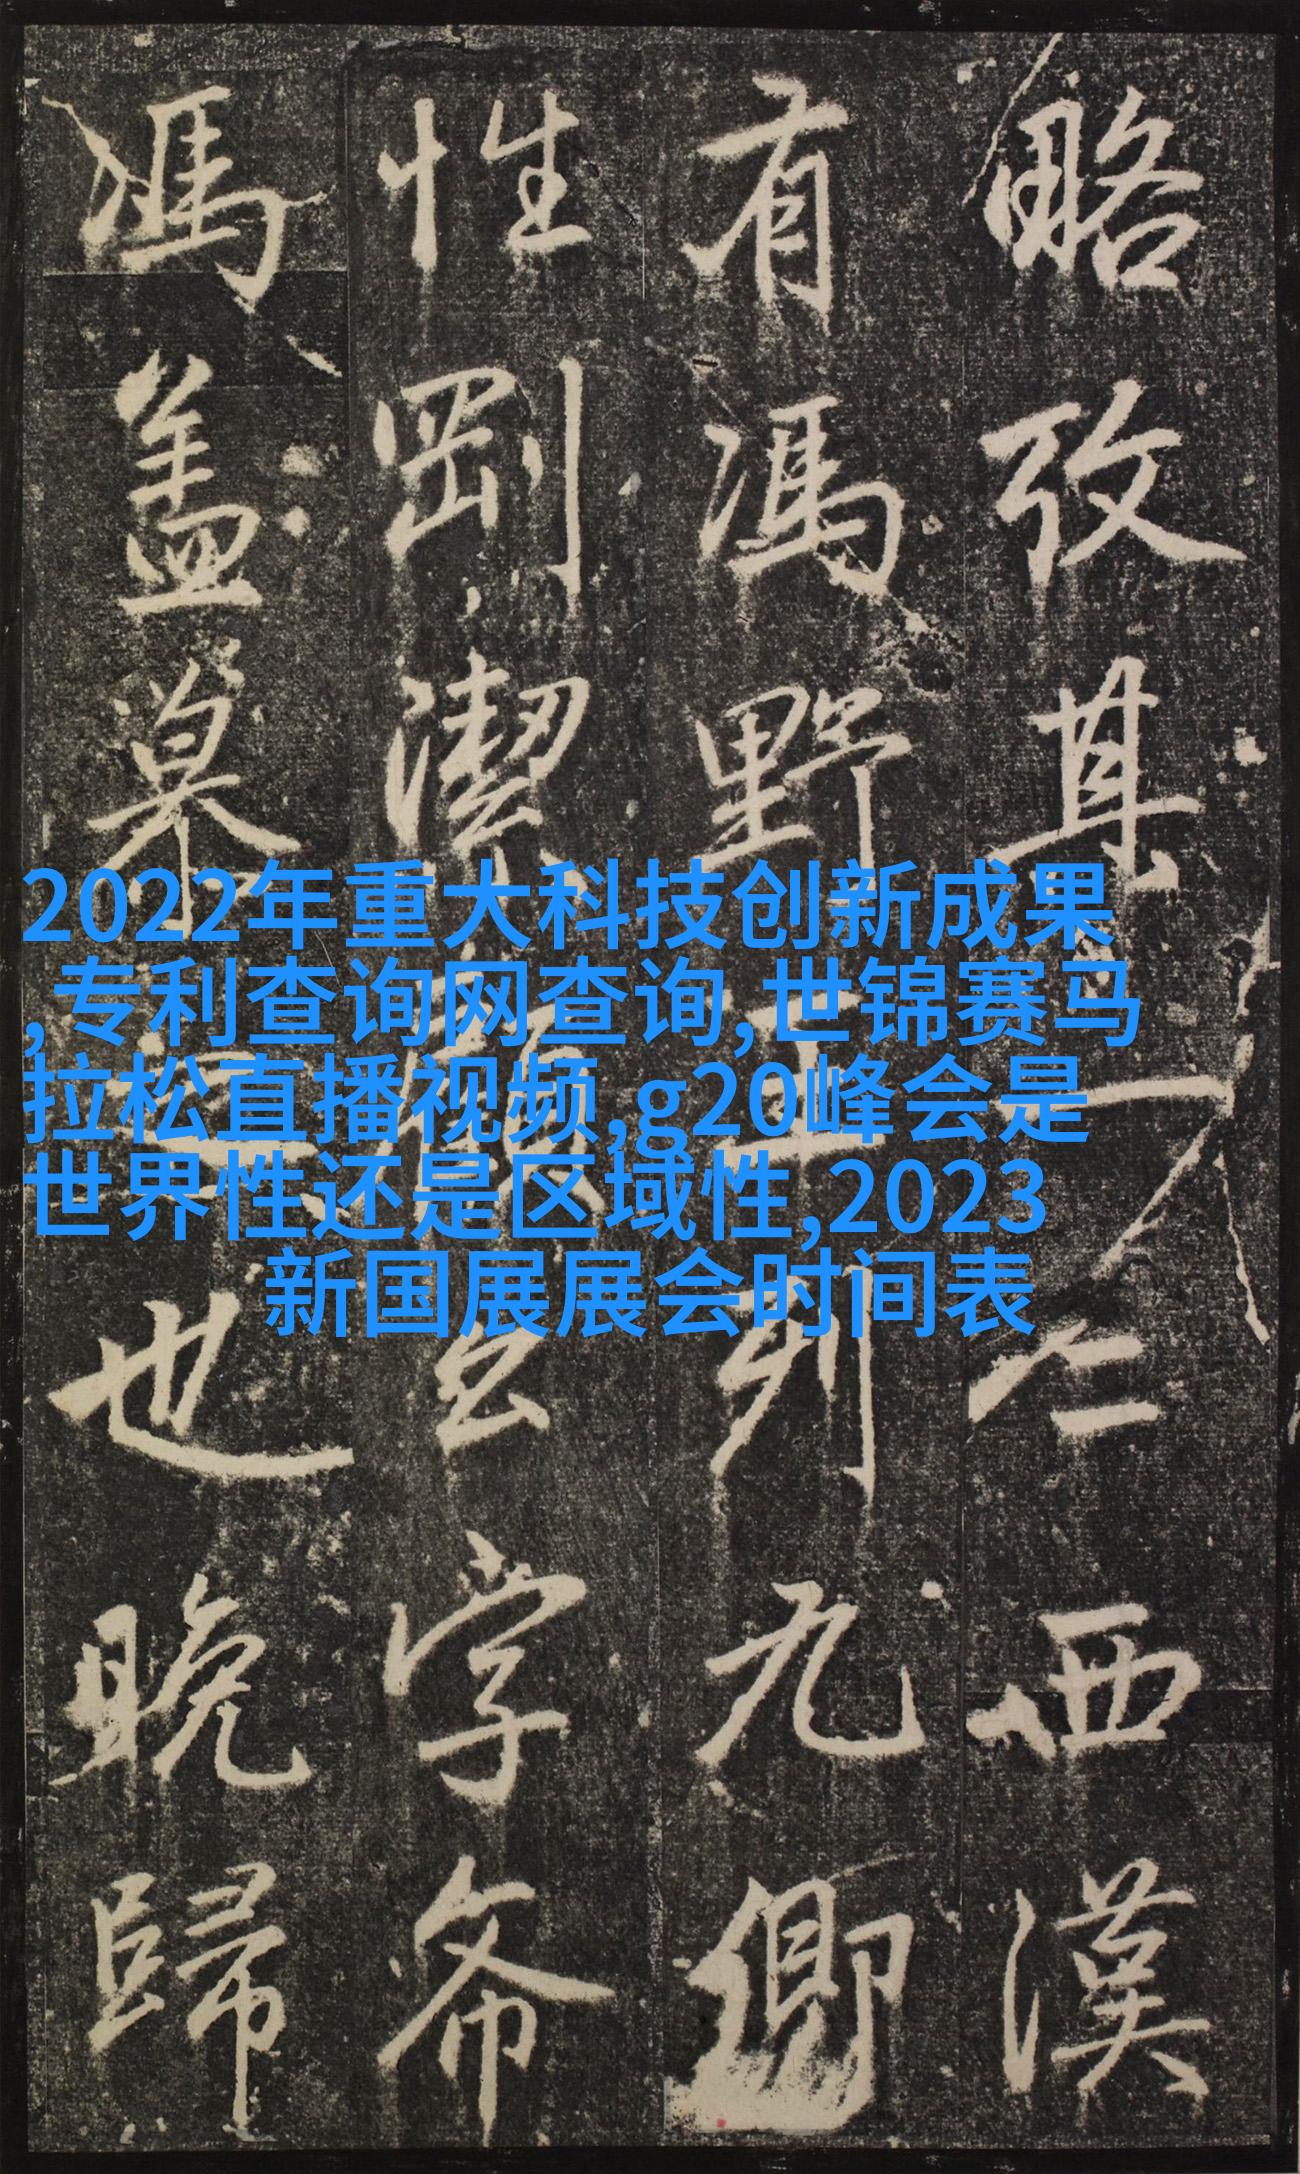 2022年重大科技创新成果
,专利查询网查询,世锦赛马
拉松直播视频,g20峰会是
世界性还是区域性,2023
新国展展会时间表
略攷其人西漢
有馮野王列九卿
性剛潔字希
馮盖慕也晚歸